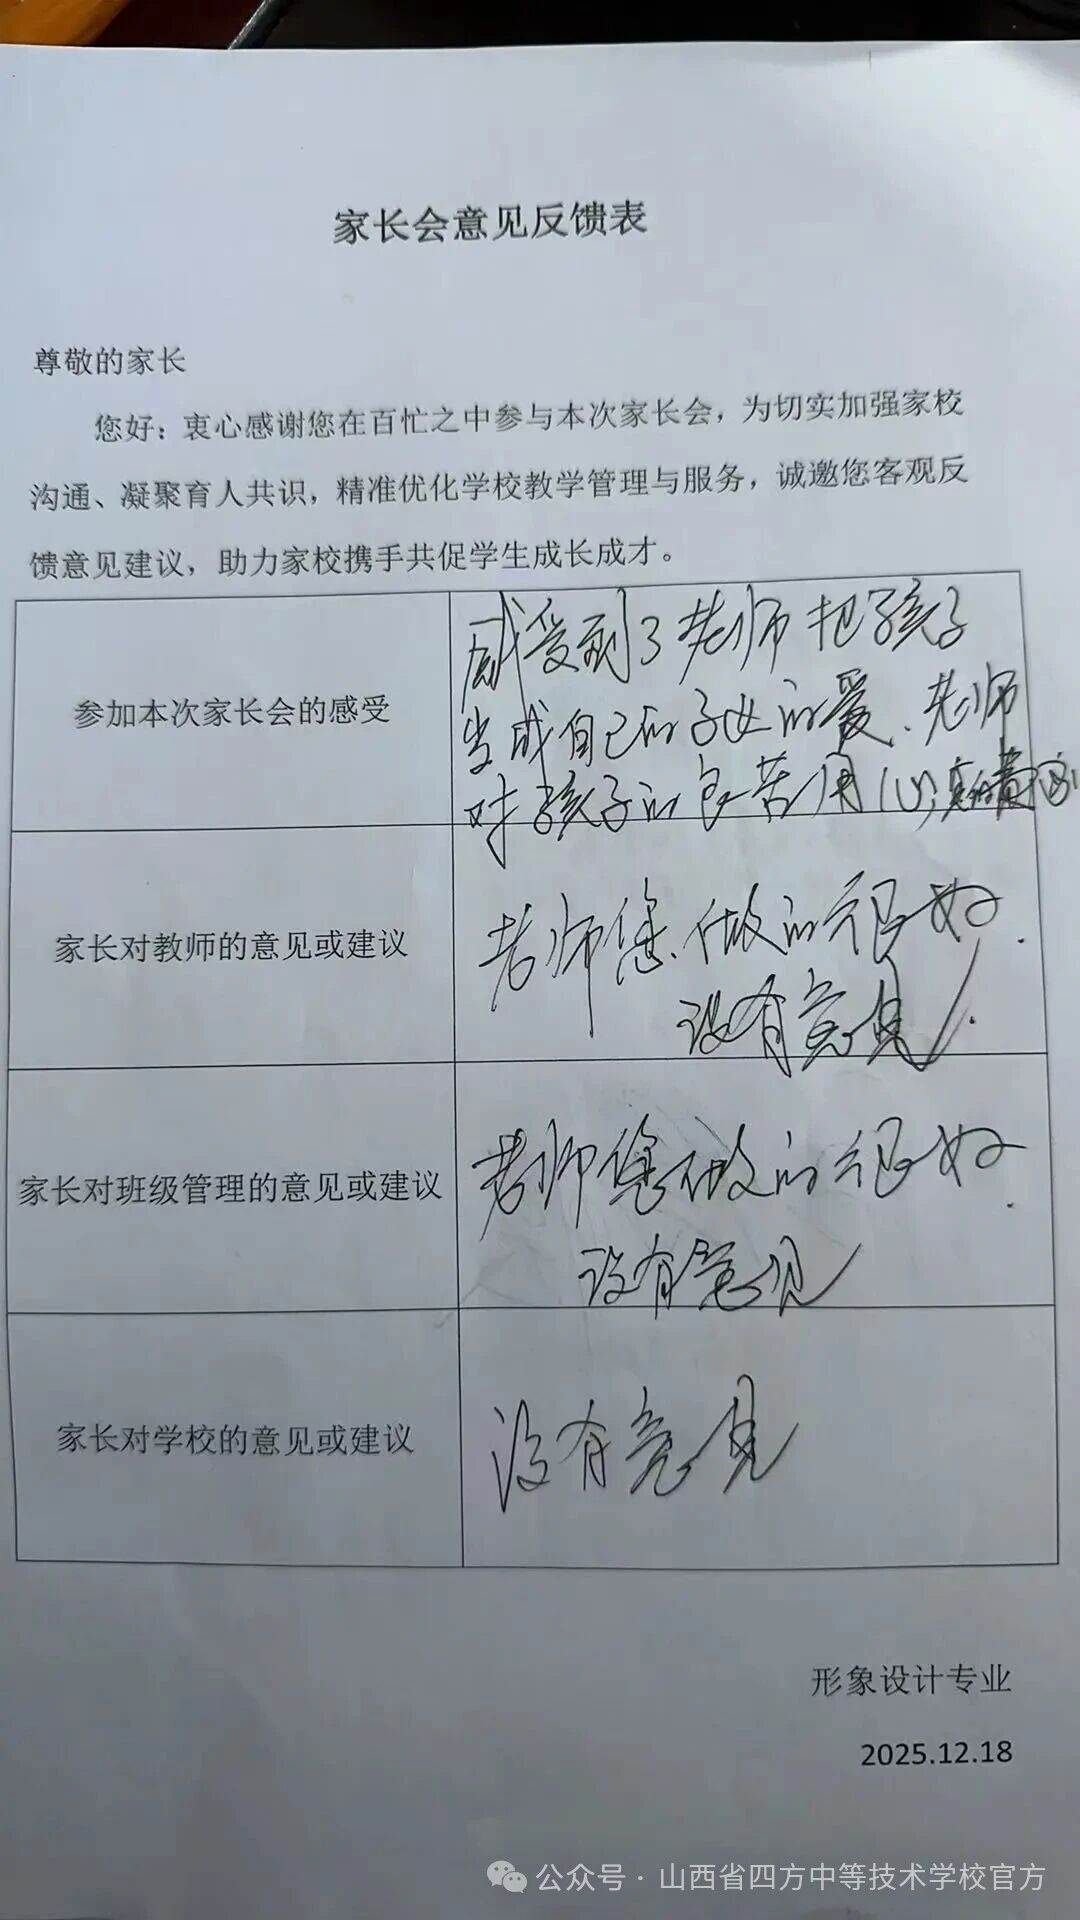 家长会意见反馈表
尊敬的家长
您好：衷心感谢您在百忙之中参与本次家长会，为切实加强家校
沟通、凝聚育人共识，精准优化学校教学管理与服务，诚邀您客观反
馈意见建议，助力家校携手共促学生成长成才。
参加本次家长会的感受
感受到了老师把孩子
当成自己的子女的爱、老师
对孩子的良苦用心
家长对教师的意见或建议
老师您做的很好.
没有意见.
家长对班级管理的意见或建议
老师您做的很好.
没有意见
家长对学校的意见或建议
没有意见
形象设计专业
2025.12.18
公众号·山西省四方中等技术学校官方